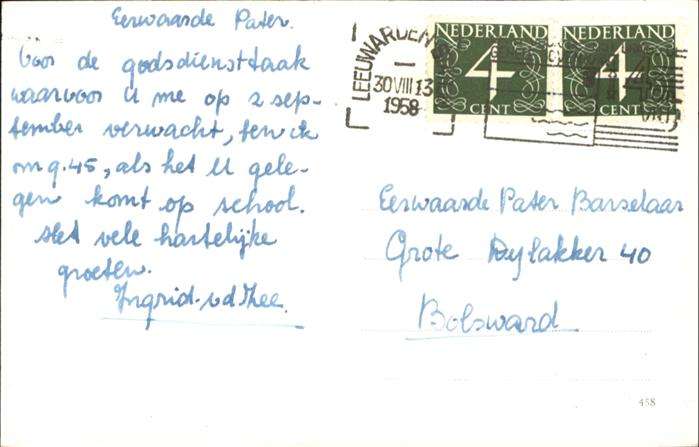 Eerwaarde Pater.
Voor de godsdiensttaak
waarvoor U me op 2 sep-
tember verwacht, ben ik
om 9.45, als het U gele-
gen komt op school.
Met vele hartelijke
groeten.
Ingrid v d
NEDERLAND
4
CENT
NEDERLAND
4
CENT
LEEUWARDEN
30 VIII 13
1958
Eerwaarde Pater Barselaar
Grote Dylakker 40
Bolsward
458